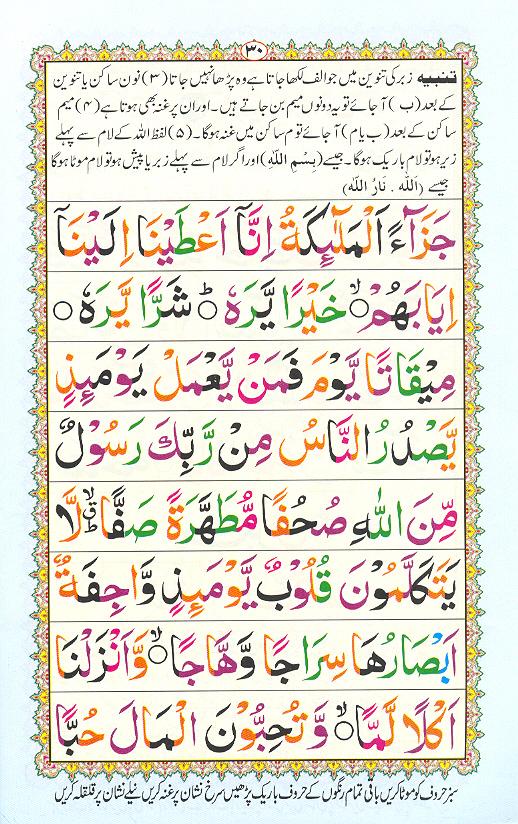 ۳۰
تنبیہ زبر کی تنوین میں جو الف لکھا جاتا ہے وہ پڑھا نہیں جاتا (۳) نون ساکن یا تنوین
کے بعد (ب) آ جائے تو یہ دونوں میم بن جاتے ہیں۔ اور ان پر غنہ بھی ہوتا ہے (۴) میم
ساکن کے بعد (ب یا م) آ جائے تو م ساکن میں غنہ ہوگا۔ (۵) لفظ اللہ کے لام سے پہلے
زیر ہو تو لام باریک ہوگا۔ جیسے (بِسْمِ اللّٰهِ) اور اگر لام سے پہلے زبر یا پیش ہو تو لام موٹا ہوگا
جیسے (اَللّٰهُ ۔ نَارُ اللّٰهِ)
جَزَآءً اَلْمَلٰٓئِكَةُ اِنَّآ اَعْطَيْنَا اِلَيْنَآ
اِيَابَهُمْ ۙ خَيْرًا يَّرَهٗ ؕ شَرًّا يَّرَهٗ ○
مِيْقَاتًا يَّوْمَ فَمَنْ يَّعْمَلْ يَوْمَئِذٍ
يَّصْدُرُ النَّاسُ مِنْ رَّبِّكَ رَسُوْلٌ
مِّنَ اللّٰهِ صُحُفًا مُّطَهَّرَةً صَفًّا ۙؕ لَّا
يَتَكَلَّمُوْنَ قُلُوْبٌ يَّوْمَئِذٍ وَّاجِفَةٌ
اَبْصَارُهَا سِرَاجًا وَّهَّاجًا ۙ وَّاَنْزَلْنَا
اَكْلًا لَّمًّا ۙ وَّتُحِبُّوْنَ الْمَالَ حُبًّا
سبز حروف کو موٹا کریں باقی تمام رنگوں کے حروف باریک پڑھیں سرخ نشان پر غنہ کریں نیلے نشان پر قلقلہ کریں